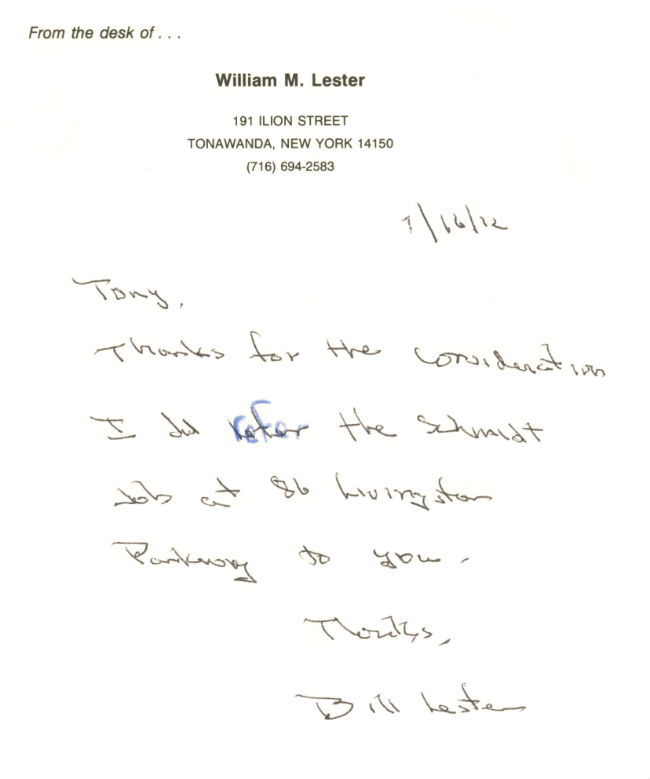 From the desk of . . .
William M. Lester
191 ILION STREET
TONAWANDA, NEW YORK 14150
(716) 694-2583
7/16/12
Tony,
Thanks for the consideration
I did refer the Schmidt
Job at 86 Livingston
Parkway to you.
Thanks,
Bill Lester